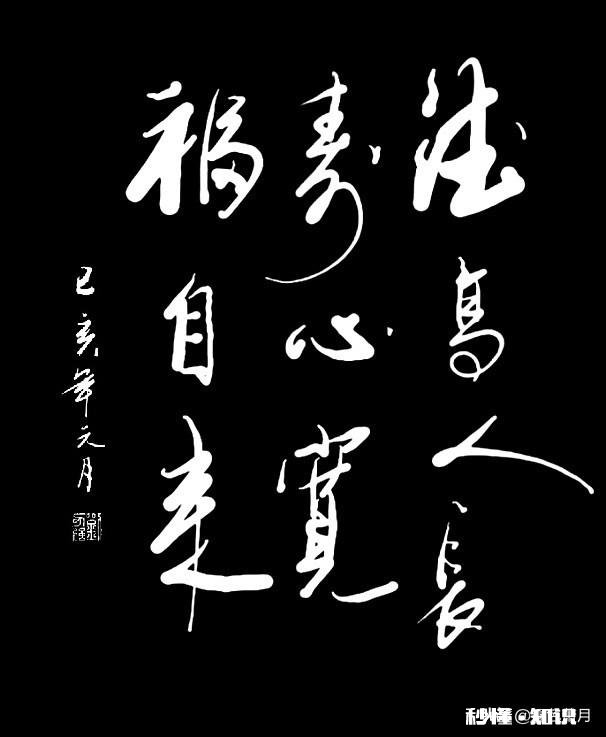 德高人長
壽心寬
福自来
己亥年元月
秒懂@知识